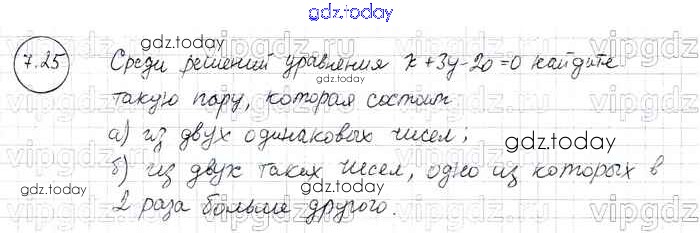 gdz.today
7.25 Среди решений уравнения x+3y-20=0 найдите
такую пару, которая состоит
а) из двух одинаковых чисел;
б) из двух таких чисел, одно из которых в
2 раза больше другого.
gdz.today
gdz.today
gdz.today
gdz.today
gdz.today
vipgdz